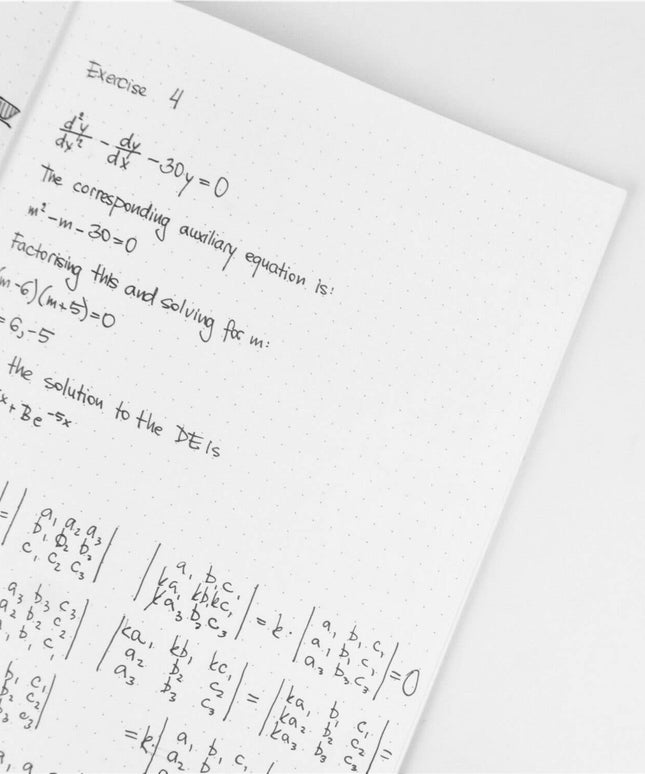 Exercise 4
d²y/dx² - dy/dx - 30y = 0
The corresponding auxiliary equation is:
m² - m - 30 = 0
Factorising this and solving for m:
(m-6)(m+5) = 0
= 6, -5
the solution to the DE is
x + Be^-5x
= | a₁ a₂ a₃
b₁ b₂ b₃
c₁ c₂ c₃ |
| a₁ b₁ c₁
ka₁ kb₁ kc₁
ka₃ b₃ c₃ | = k · | a₁ b₁ c₁
a₁ b₁ c₁
a₃ b₃ c₃ | = 0
a₃ b₃ c₃
a₂ b₂ c₂
b₁ c₁ |
| ka₁ kb₁ kc₁
a₂ b₂ c₂
a₃ b₃ c₃ | = | ka₁ b₁ c₁
ka₂ b₂ c₂
ka₃ b₃ c₃ | =
b₁ c₁
b₂ c₂
c₃ |
= k | a₁ b₁ c₁
a₂ b